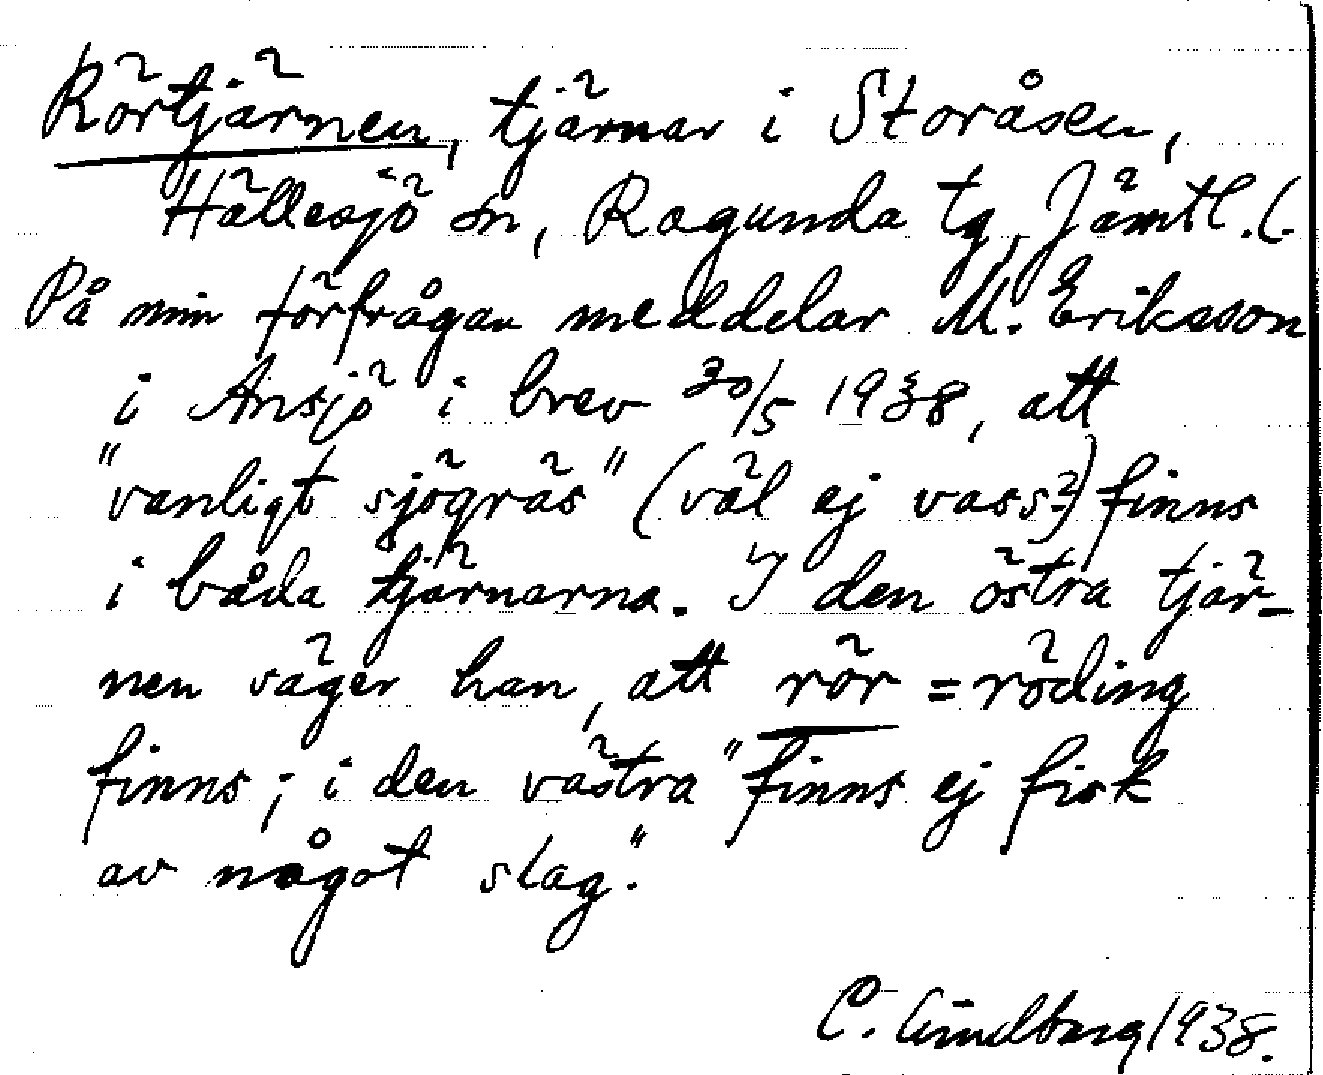 Rörtjärnen, tjärnar i Storåsen,
Hällesjö sn, Ragunda tg, Jämtl.(.
På min förfrågan meddelar M. Eriksson
i Ansjö i brev 30/5 1938, att
"vanligt sjögräs" (väl ej vass?) finns
i båda tjärnarna. I den östra tjär-
nen säger han, att rör = röding
finns; i den västra "finns ej fisk
av något slag".
C. Lindberg 1938.